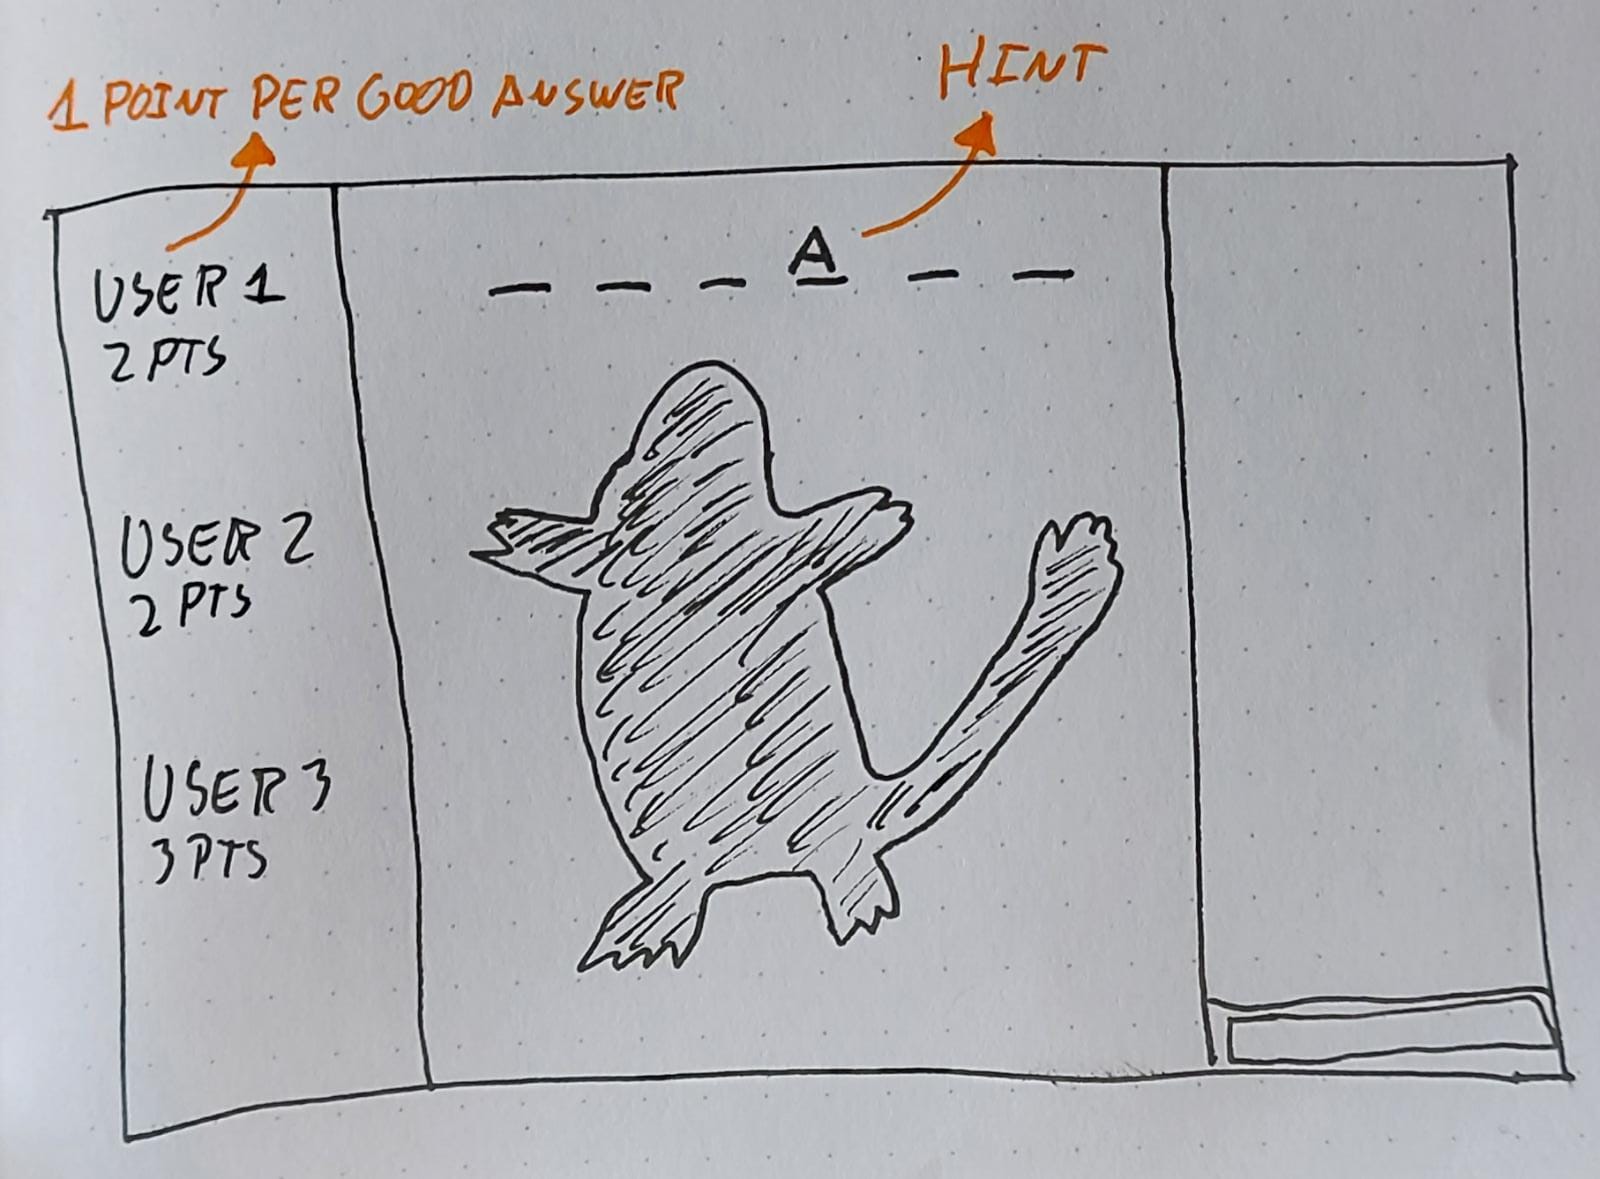 1 POINT PER GOOD ANSWER
HINT
A
USER 1
2 PTS
USER 2
2 PTS
USER 3
3 PTS